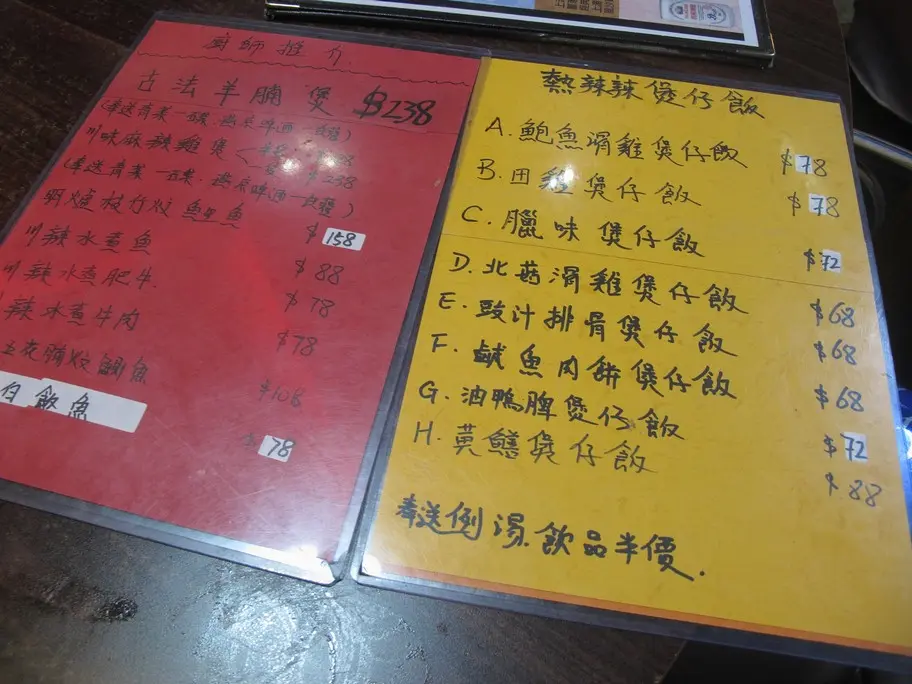 廚師推介
古法羊腩煲 $238
(奉送青菜一碟,
川味麻辣雞煲
(奉送青菜一碟,
$238
枝竹炆
$158
川辣水煮魚 $88
川辣水煮肥牛 $78
辣水煮牛肉 $78
腩炆鯽魚 $108
白飯魚 $78
熱辣辣煲仔飯
A. 鮑魚滑雞煲仔飯 $78
B. 田雞煲仔飯 $78
C. 臘味煲仔飯 $72
D. 北菇滑雞煲仔飯 $68
E. 豉汁排骨煲仔飯 $68
F. 鹹魚肉餅煲仔飯 $68
G. 油鴨脾煲仔飯 $72
H. 黃鱔煲仔飯 $88
奉送例湯. 飲品半價.